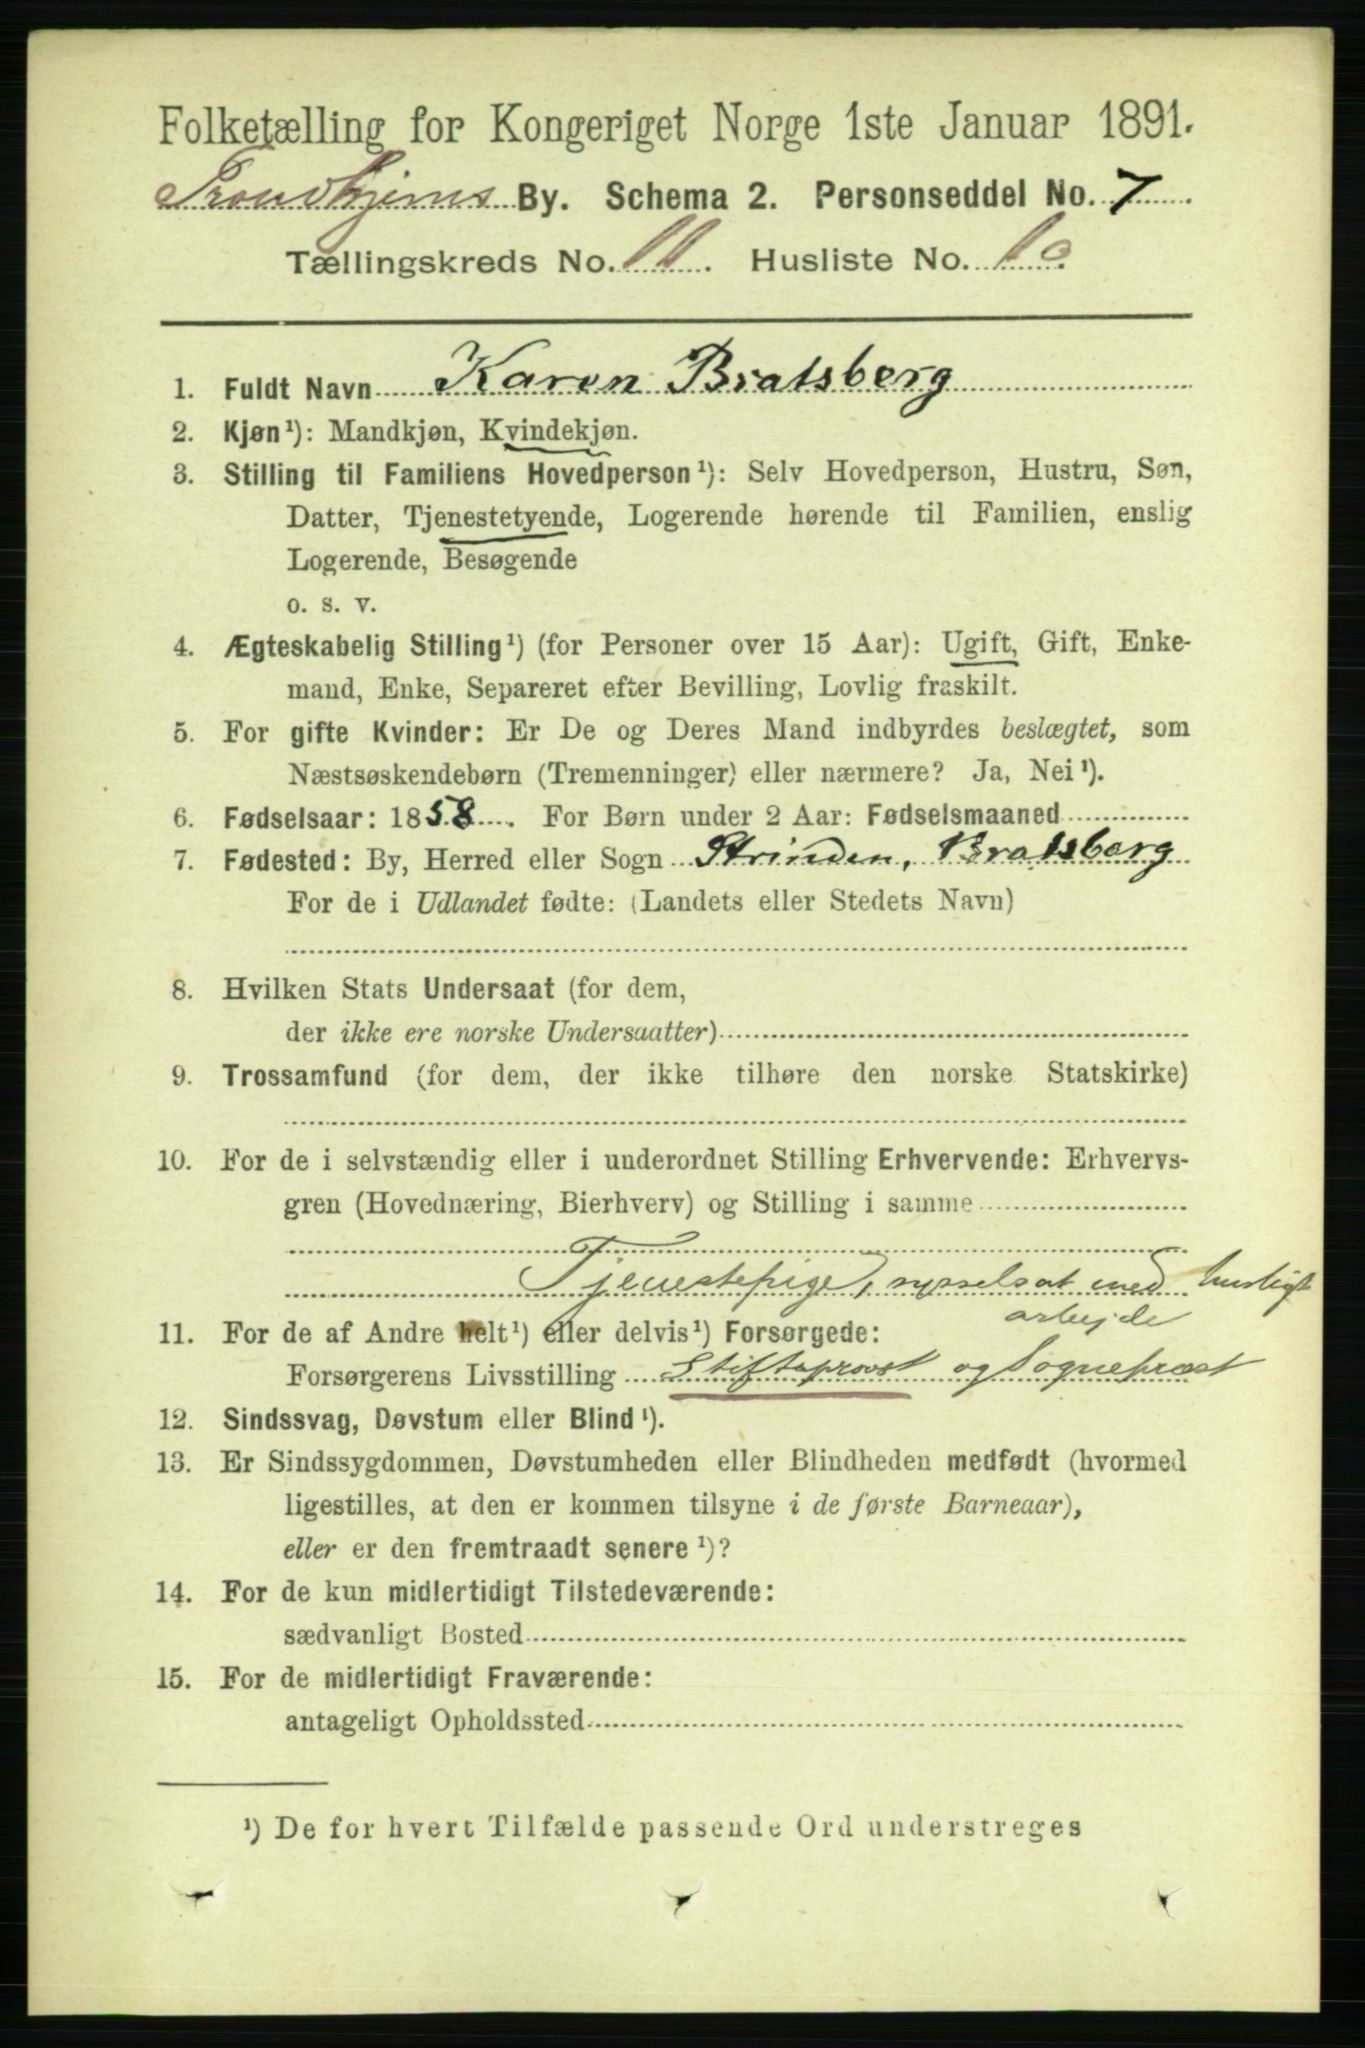 Folketælling for Kongeriget Norge 1ste Januar 1891.
Trondhjems By. Schema 2. Personseddel No. 7
Tællingskreds No. 11. Husliste No. 10
1. Fuldt Navn Karen Bratsberg
2. Kjøn¹): Mandkjøn, Kvindekjøn.
3. Stilling til Familiens Hovedperson¹): Selv Hovedperson, Hustru, Søn,
Datter, Tjenestetyende, Logerende hørende til Familien, enslig
Logerende, Besøgende
o. s. v.
4. Ægteskabelig Stilling¹) (for Personer over 15 Aar): Ugift, Gift, Enke-
mand, Enke, Separeret efter Bevilling, Lovlig fraskilt.
5. For gifte Kvinder: Er De og Deres Mand indbyrdes beslægtet, som
Næstsøskendebørn (Tremenninger) eller nærmere? Ja, Nei¹).
6. Fødselsaar: 1858. For Børn under 2 Aar: Fødselsmaaned
7. Fødested: By, Herred eller Sogn Strinden, Bratsberg
For de i Udlandet fødte: (Landets eller Stedets Navn)
8. Hvilken Stats Undersaat (for dem,
der ikke ere norske Undersaatter)
9. Trossamfund (for dem, der ikke tilhøre den norske Statskirke)
10. For de i selvstændig eller i underordnet Stilling Erhvervende: Erhvervs-
gren (Hovednæring, Bierhverv) og Stilling i samme
Tjenestepige, sysselsat med husligt
arbejde
11. For de af Andre helt¹) eller delvis¹) Forsørgede:
Forsørgerens Livsstilling Stiftsprovst og Sognepræst
12. Sindssvag, Døvstum eller Blind¹).
13. Er Sindssygdommen, Døvstumheden eller Blindheden medfødt (hvormed
ligestilles, at den er kommen tilsyne i de første Barneaar),
eller er den fremtraadt senere¹)?
14. For de kun midlertidigt Tilstedeværende:
sædvanligt Bosted
15. For de midlertidigt Fraværende:
antageligt Opholdssted
¹) De for hvert Tilfælde passende Ord understreges